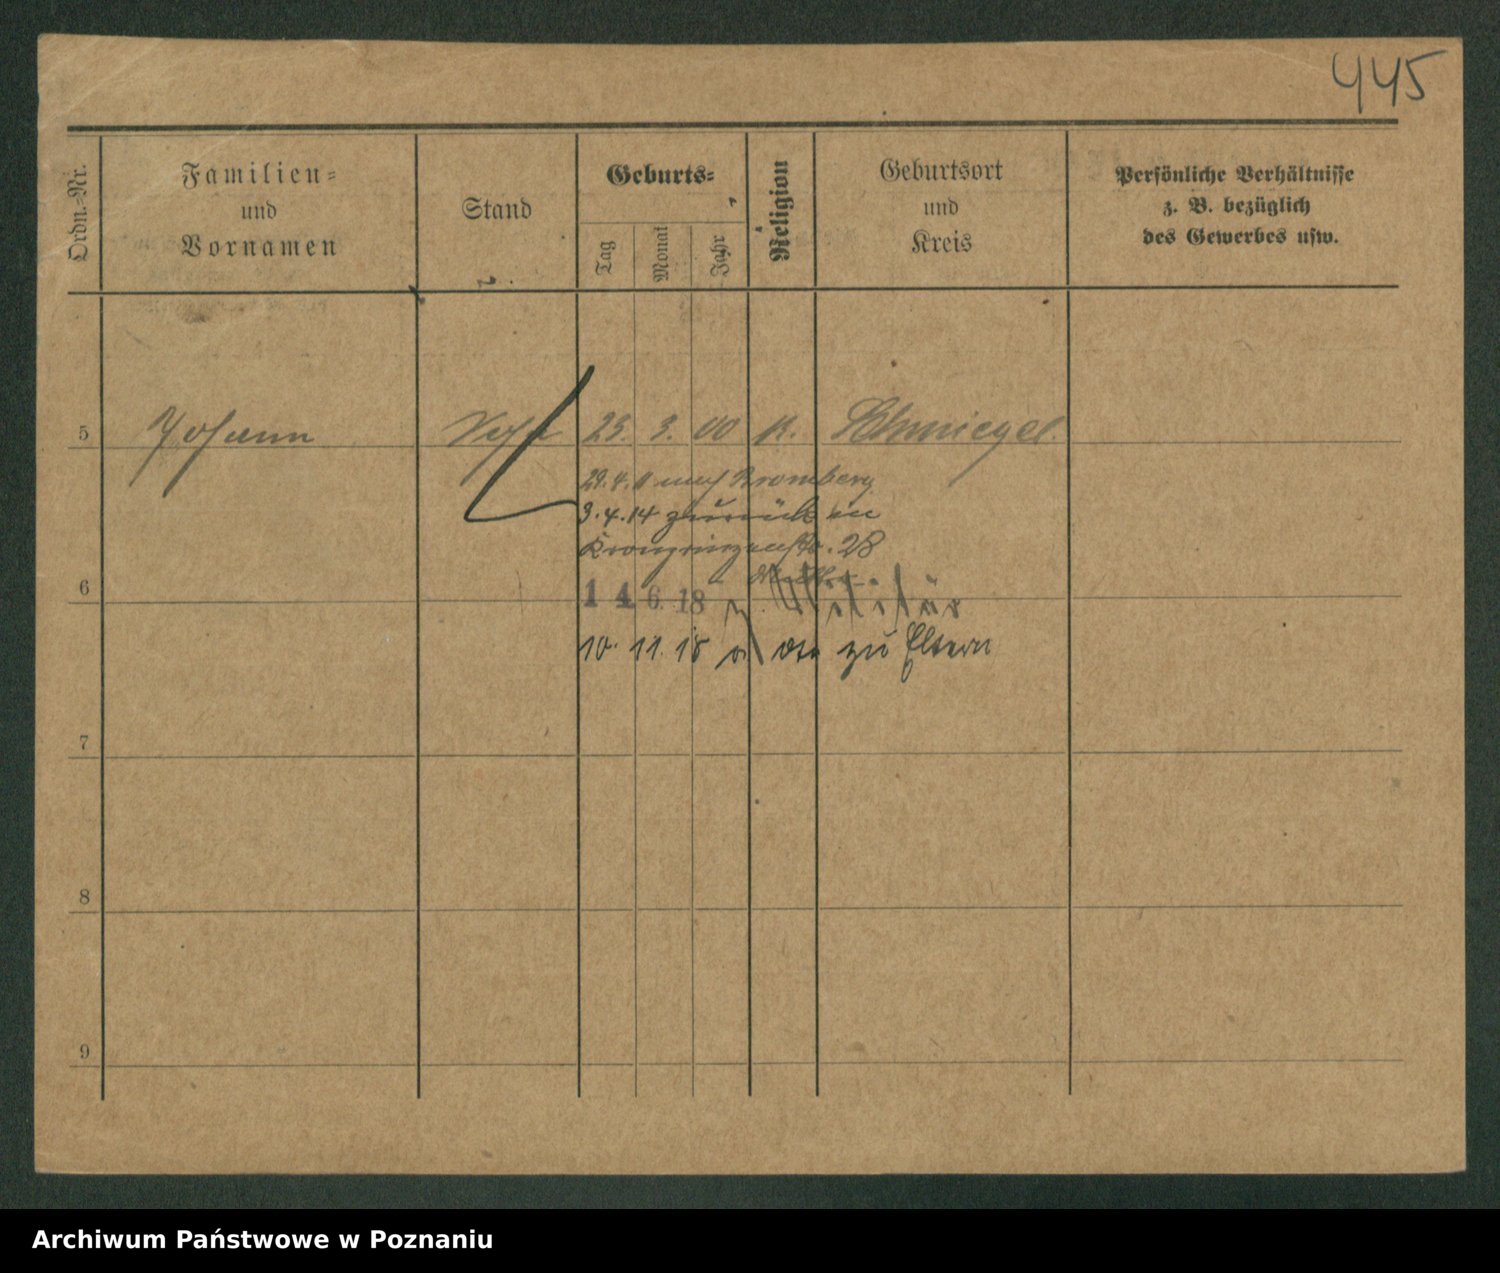 445
Ordn.-Nr.
Familien-
und
Vornamen
Stand
Geburts-
Tag
Monat
Jahr
Religion
Geburtsort
und
Kreis
Persönliche Verhältnisse
z. B. bezüglich
des Gewerbes usw.
5 Johann 23. 3. 00 K. Schmiegel.
nach Bromberg
3.4.14 zurück in
Kronprinzenstr. 28
6
14 6. 18 z. Militär
10. 11. 18 zu Eltern
7
8
9
Archiwum Państwowe w Poznaniu